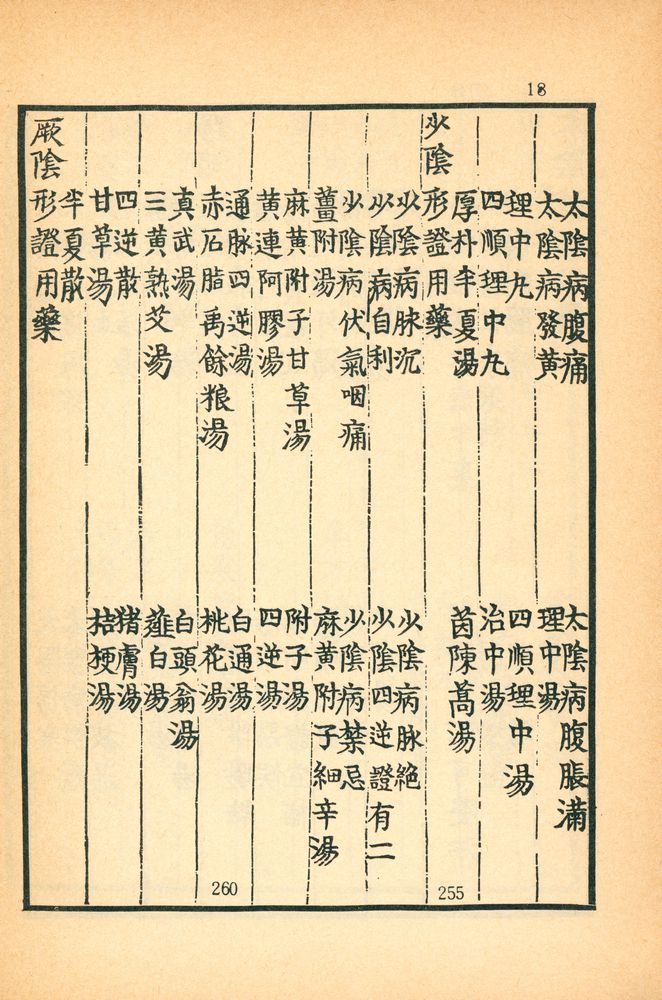 18
太陰病腹痛　太陰病腹脹滿
太陰病發黃　理中湯
理中丸　四順理中湯
四順理中丸　治中湯
厚朴半夏湯　茵陳蒿湯
少陰　形證用藥
少陰病脉沉　少陰病脉絕
少陰病自利　少陰四逆證有二
少陰病伏氣咽痛　少陰病禁忌
薑附湯　麻黃附子細辛湯
麻黃附子甘草湯　附子湯
黃連阿膠湯　四逆湯
通脉四逆湯　白通湯
赤石脂禹餘粮湯　桃花湯
真武湯　白頭翁湯
三黃熟艾湯　薤白湯
四逆散　猪膚湯
甘草湯　桔梗湯
半夏散
厥陰　形證用藥
255
260